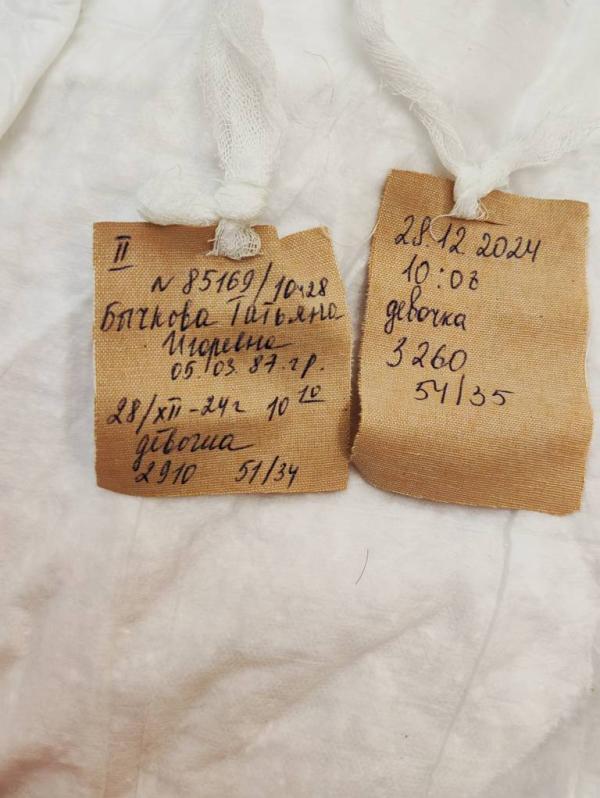 II
N 85169/10428
Бычкова Татьяна
Игоревна
05.03.87.гр.
28/XII-24г 10 10
девочка
2910 51/34
28.12.2024
10:08
девочка
3260
54/35